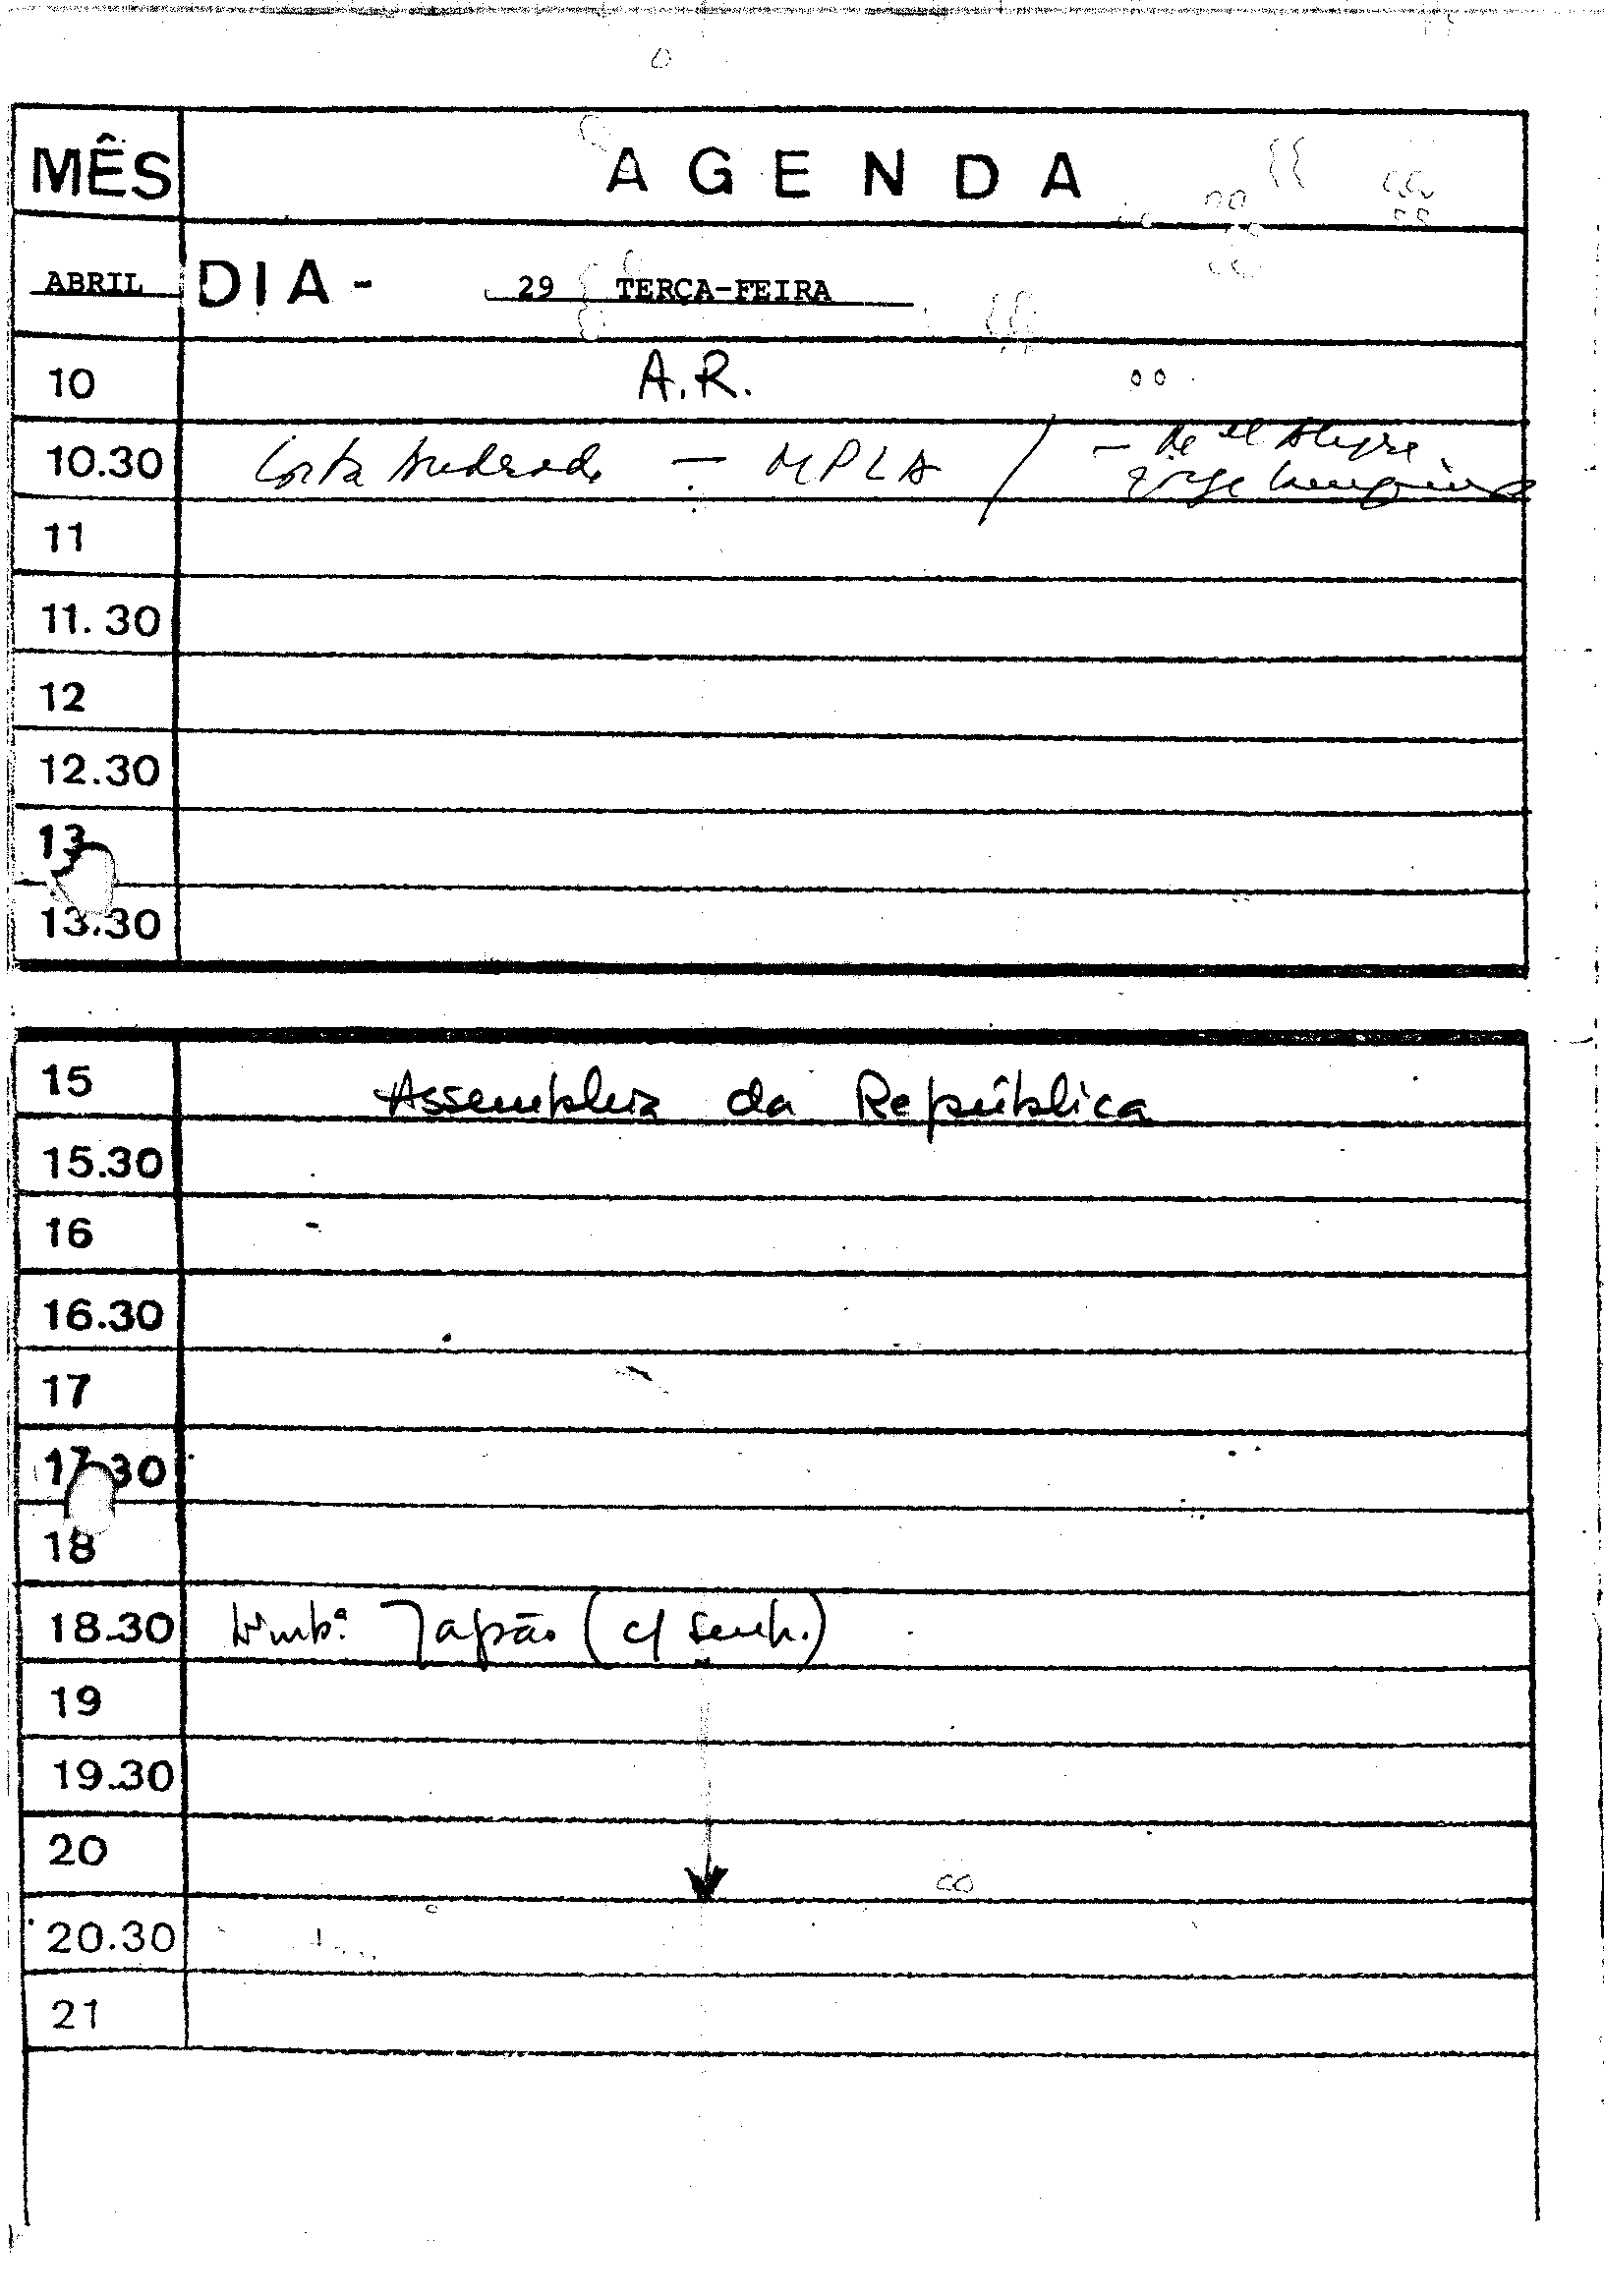 MÊS AGENDA
ABRIL DIA - 29 TERÇA-FEIRA
10 A.R.
10.30 Costa Andrade — MPLA / — Alegre
11
11.30
12
12.30
13
13.30
15 Assembleia da República
15.30
16
16.30
17
17.30
18
18.30 Embª. Japão (c/ senh.)
19
19.30
20
20.30
21